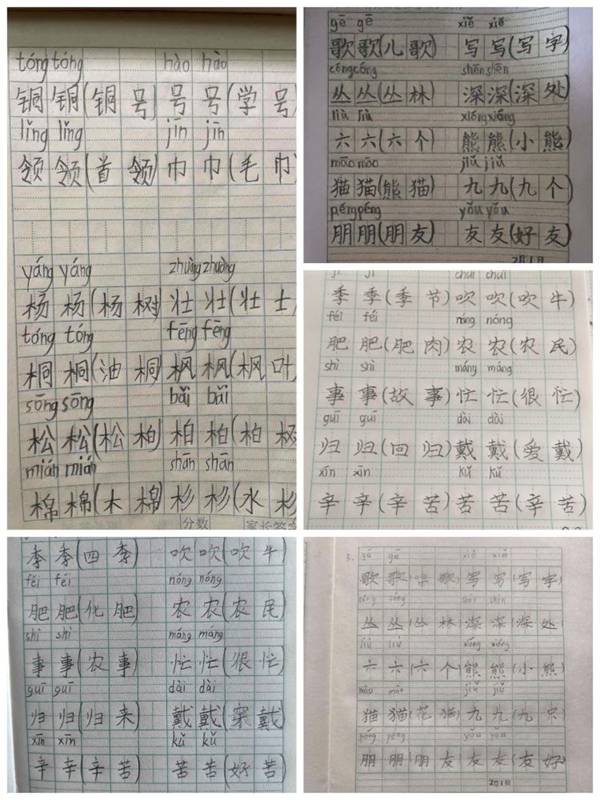 tóng tóng hào hào
铜 铜(铜 号 号 号(学 号
lǐng lǐng jīn jīn
领 领(首 领) 巾 巾(毛 巾)
yáng yáng zhuàng zhuàng
杨 杨(杨 树) 壮 壮(壮 士
tóng tóng fēng fēng
桐 桐(油 桐) 枫 枫(枫 叶
sōng sōng bǎi bǎi
松 松(松 柏) 柏 柏(柏
mián mián shān shān
棉 棉(木 棉) 杉 杉(水 杉
分数
gē gē xiě xiě
歌 歌(儿 歌) 写 写(写 字)
cóng cóng shēn shēn
丛 丛(丛 林) 深 深(深 处)
liù liù xióng xióng
六 六(六 个) 熊 熊(小 熊)
māo māo jiǔ jiǔ
猫 猫(熊 猫) 九 九(九 个)
péng péng yǒu yǒu
朋 朋(朋 友) 友 友(好 友)
jì jì chuī chuī
季 季(季 节) 吹 吹(吹 牛)
féi féi nóng nóng
肥 肥(肥 肉) 农 农(农 民)
shì shì máng máng
事 事(故 事) 忙 忙(很 忙)
guī guī dài dài
归 归(回 归) 戴 戴(爱 戴)
xīn xīn kǔ kǔ
辛 辛(辛 苦) 苦 苦(辛 苦)
季 季(四 季) 吹 吹(吹 牛
féi féi nóng nóng
肥 肥(化 肥) 农 农(农 民)
shì shì máng máng
事 事(农 事) 忙 忙(很 忙)
guī guī dài dài
归 归(归 来) 戴 戴(穿 戴)
xīn xīn kǔ kǔ
辛 辛(辛 苦) 苦 苦(好 苦)
gē gē xiě xiě
歌 歌(唱 歌) 写 写(写 字)
cóng cóng shēn shēn
丛 丛(丛 林) 深 深(深 处)
liù liù xióng xióng
六 六(六 个) 熊 熊(小 熊)
māo māo jiǔ jiǔ
猫 猫(花 猫) 九 九(九
péng péng yǒu yǒu
朋 朋(朋 友) 友 友(友 好)